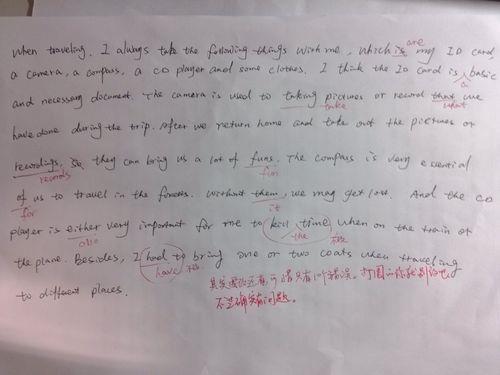 When traveling. I always take the following things with me, which is my ID card,
are
a camera, a compass, a CD player and some clothes. I think the ID card is basic
a
and necessary document. The camera is used to taking pictures or record that we
take what
have done during the trip. After we return home and take out the pictures or
recordings, So, they can bring us a lot of funs. The compass is very essential
records fun
of us to travel in the forests. Without them, we may get lost. And the CD
for it
player is either very important for me to kill time when on the train or
also the
the plane. Besides, I had to bring one or two coats when traveling
have
to different places.
不过确实有问题。